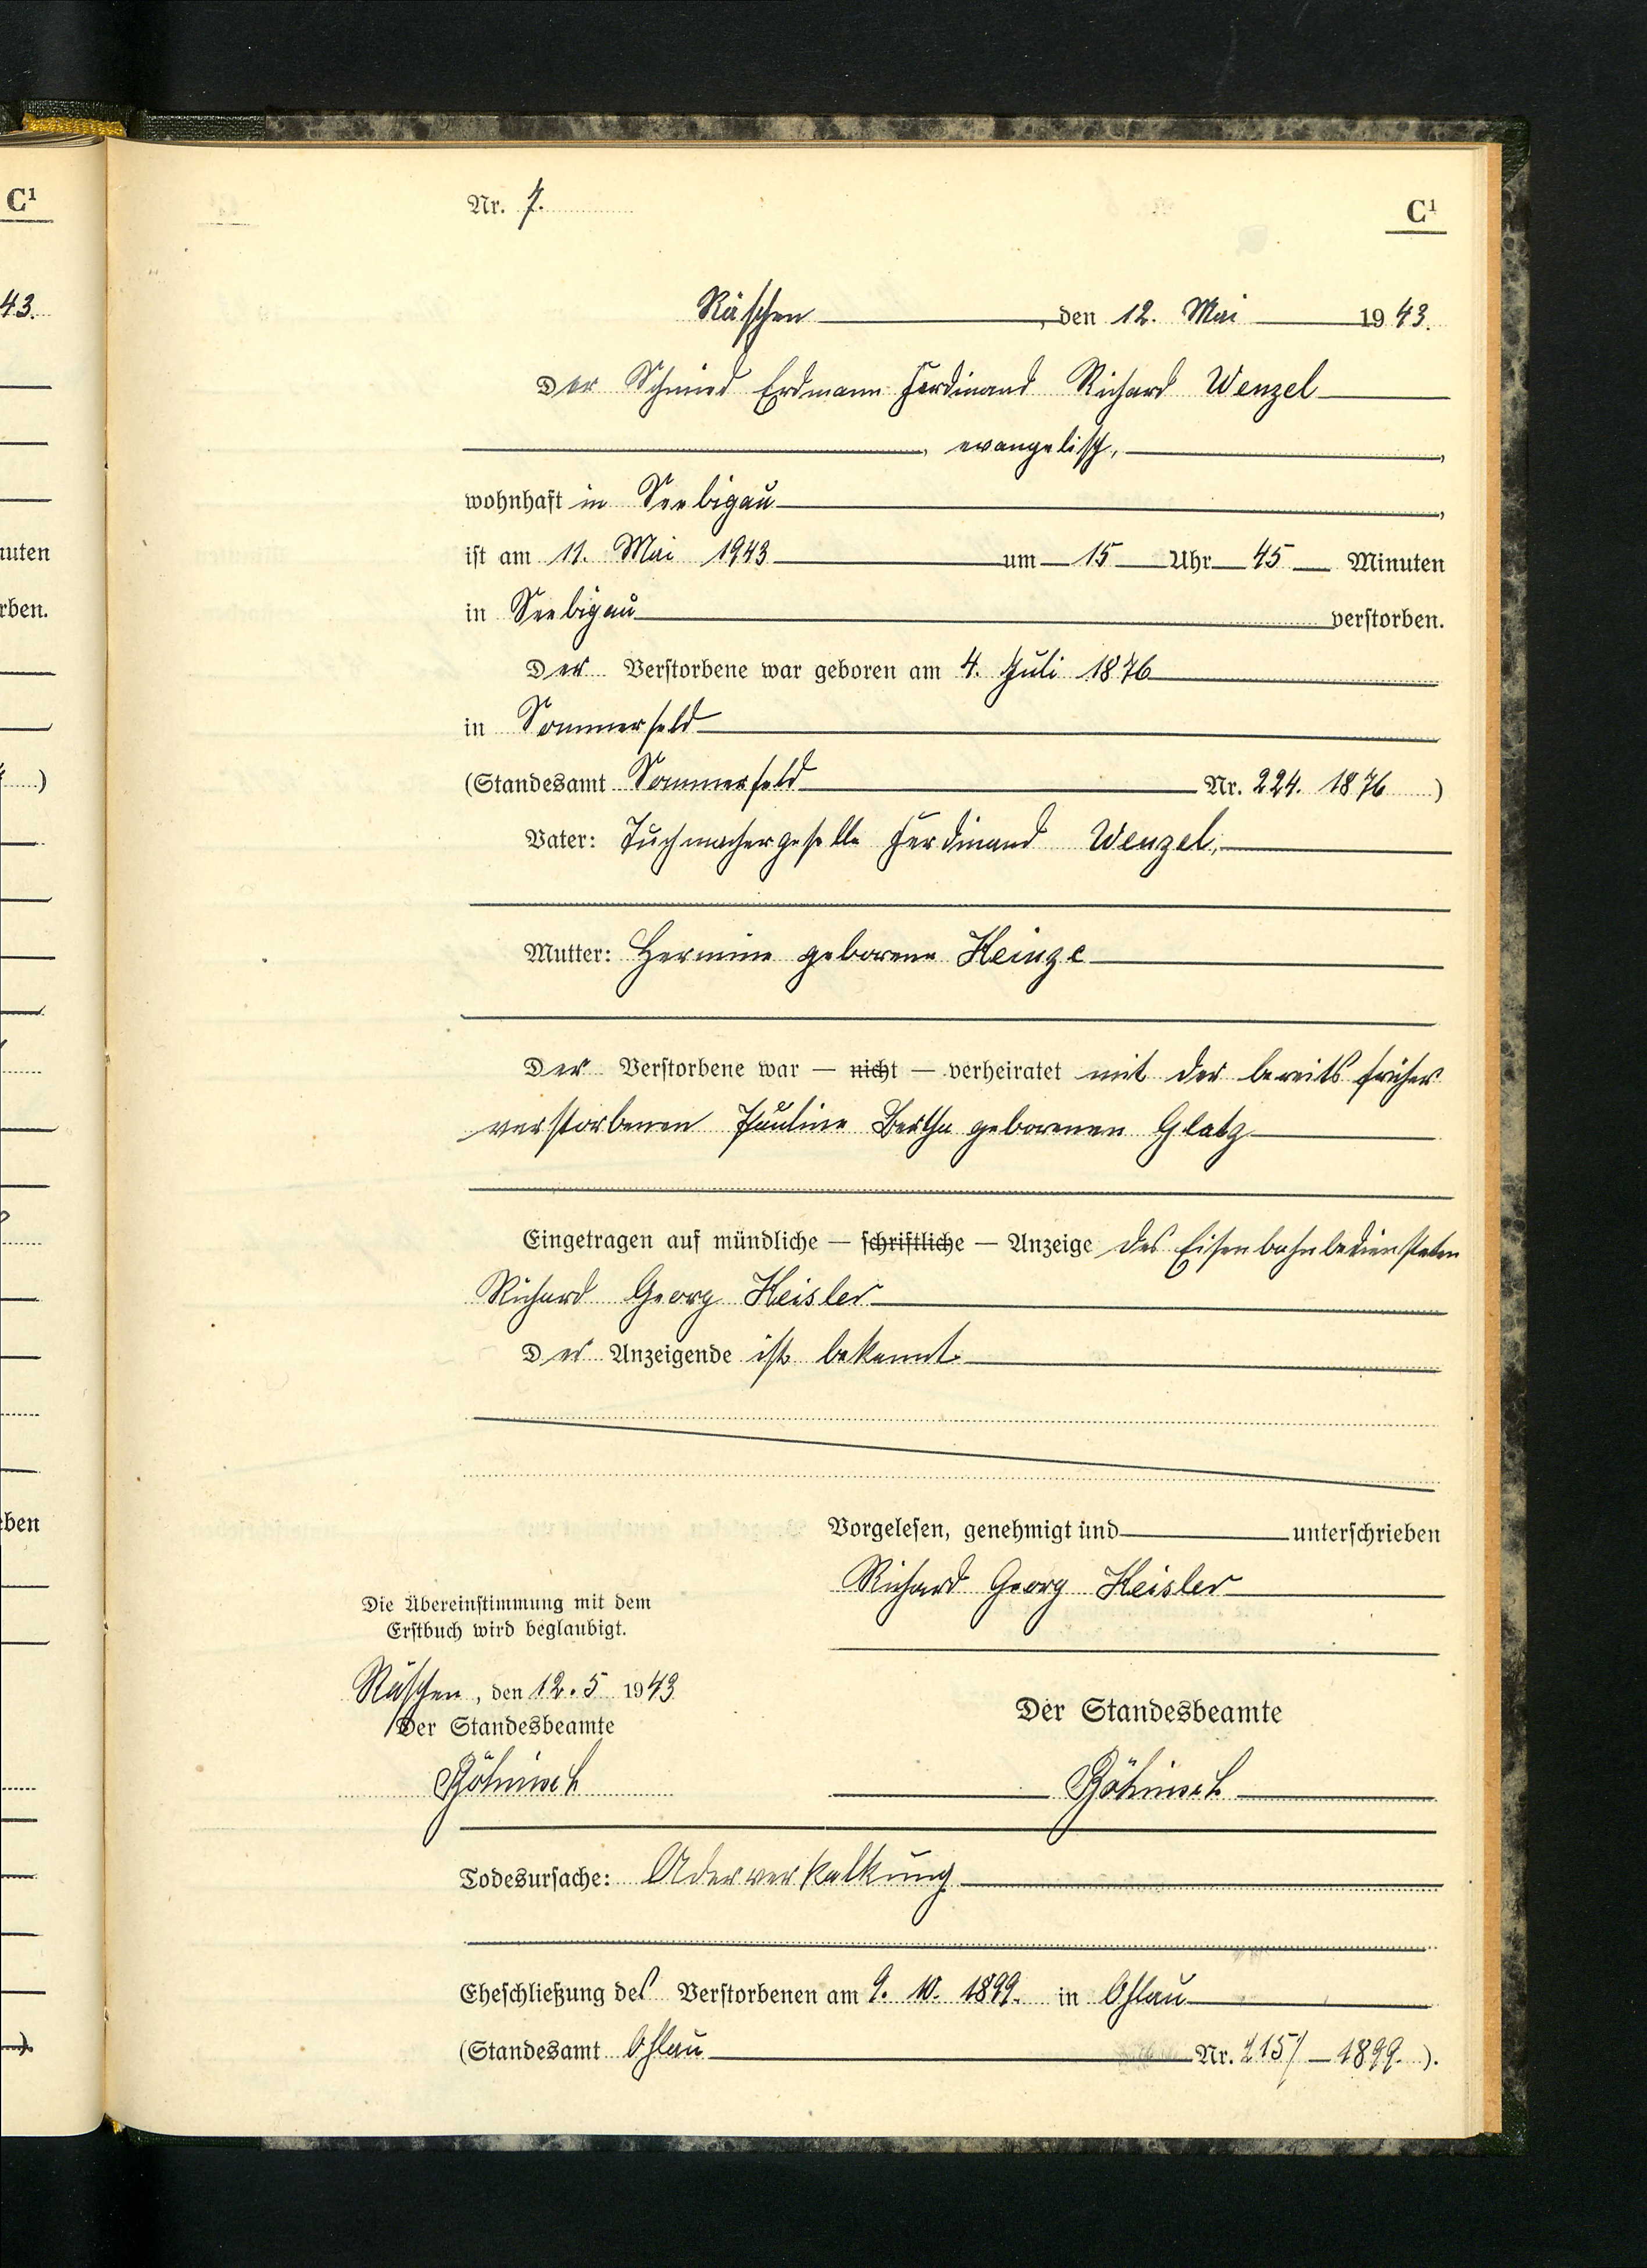 C¹
43.
nuten
rben.
)
ben
).
Nr. 7.
C¹
Räschen, den 12. Mai 1943.
Der Schmied Erdmann Ferdinand Richard Wenzel
, evangelisch,
wohnhaft in Seebigau,
ist am 11. Mai 1943 um 15 Uhr 45 Minuten
in Seebigau verstorben.
Der Verstorbene war geboren am 4. Juli 1876
in Sommerfeld
(Standesamt Sommerfeld Nr. 224. 1876)
Vater: Tuchmachergeselle Ferdinand Wenzel,
Mutter: Hermine geborene Heinze
Der Verstorbene war — nicht — verheiratet mit der bereits früher
verstorbenen Pauline Bertha geborenen Glatz
Eingetragen auf mündliche — schriftliche — Anzeige des Eisenbahnbediensteten
Richard Georg Heisler
Der Anzeigende ist bekannt.
Vorgelesen, genehmigt und unterschrieben
Richard Georg Heisler
Die Übereinstimmung mit dem
Erstbuch wird beglaubigt.
Räschen, den 12. 5 1943
Der Standesbeamte
Böhnisch
Der Standesbeamte
Böhnisch
Todesursache: Aderverkalkung
Eheschließung des Verstorbenen am 9. 10. 1899. in Ohlau
(Standesamt Ohlau Nr. 215/ — 1899.).